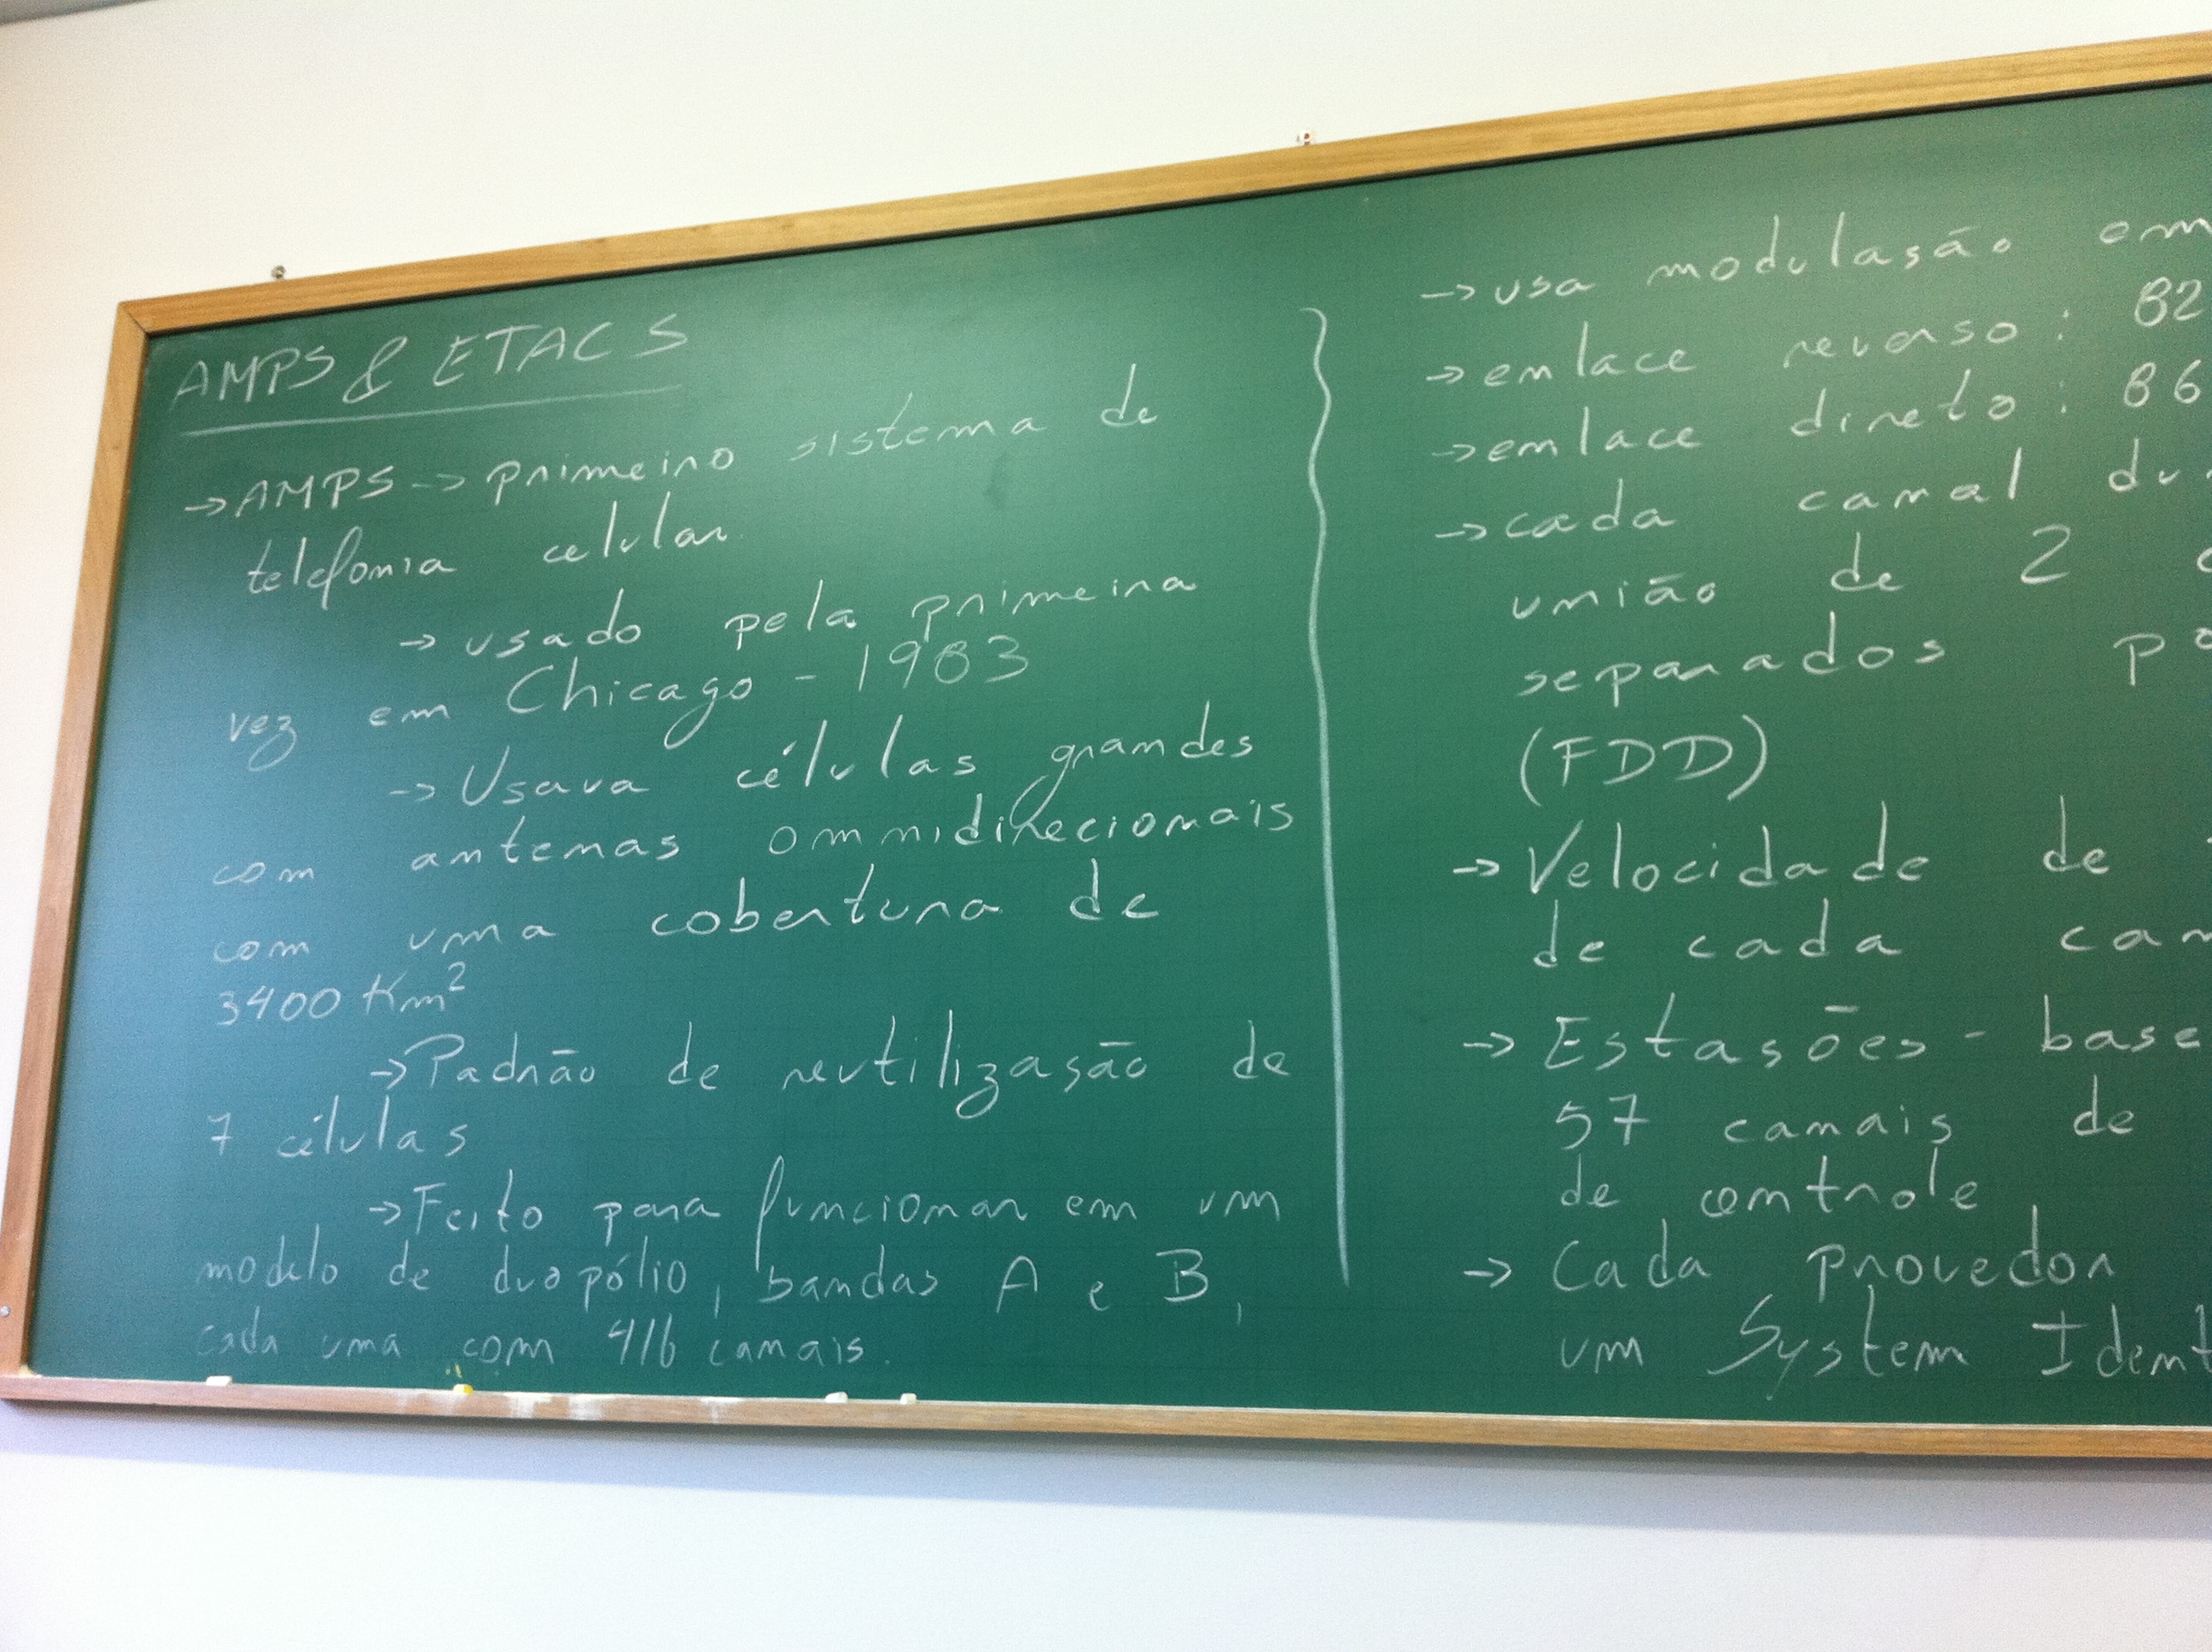 AMPS & ETACS
→ AMPS → primeiro sistema de
telefonia celular
→ usado pela primeira
vez em Chicago - 1983
→ Usava células grandes
com antenas omnidirecionais
com uma cobertura de
3400 Km²
→ Padrão de reutilização de
7 células
→ Feito para funcionar em um
modelo de duopólio, bandas A e B,
cada uma com 416 canais.
→ usa modulasão em
→ enlace reverso: 82
→ enlace direto: 86
→ cada canal du
união de 2 c
separados po
(FDD)
→ Velocidade de
de cada can
→ Estasões - base
57 canais de
de controle
→ Cada provedor
um System Ident